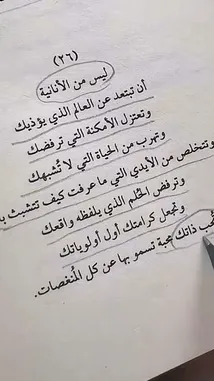 (٢٦)
ليس من الأنانية
أن تبتعد عن العالم الذي يؤذيك
وتعتزل الأمكنة التي ترفضك
وتهرب من الحياة التي لا تُشبهك
وتتخلص من الأيدي التي ما عرفت كيف تتشبث
وترفض الحُلم الذي يلفظه واقعك
وتجعل كرامتك أول أولوياتك
ذاتك محبة تسمو بها عن كل المُنغصات.